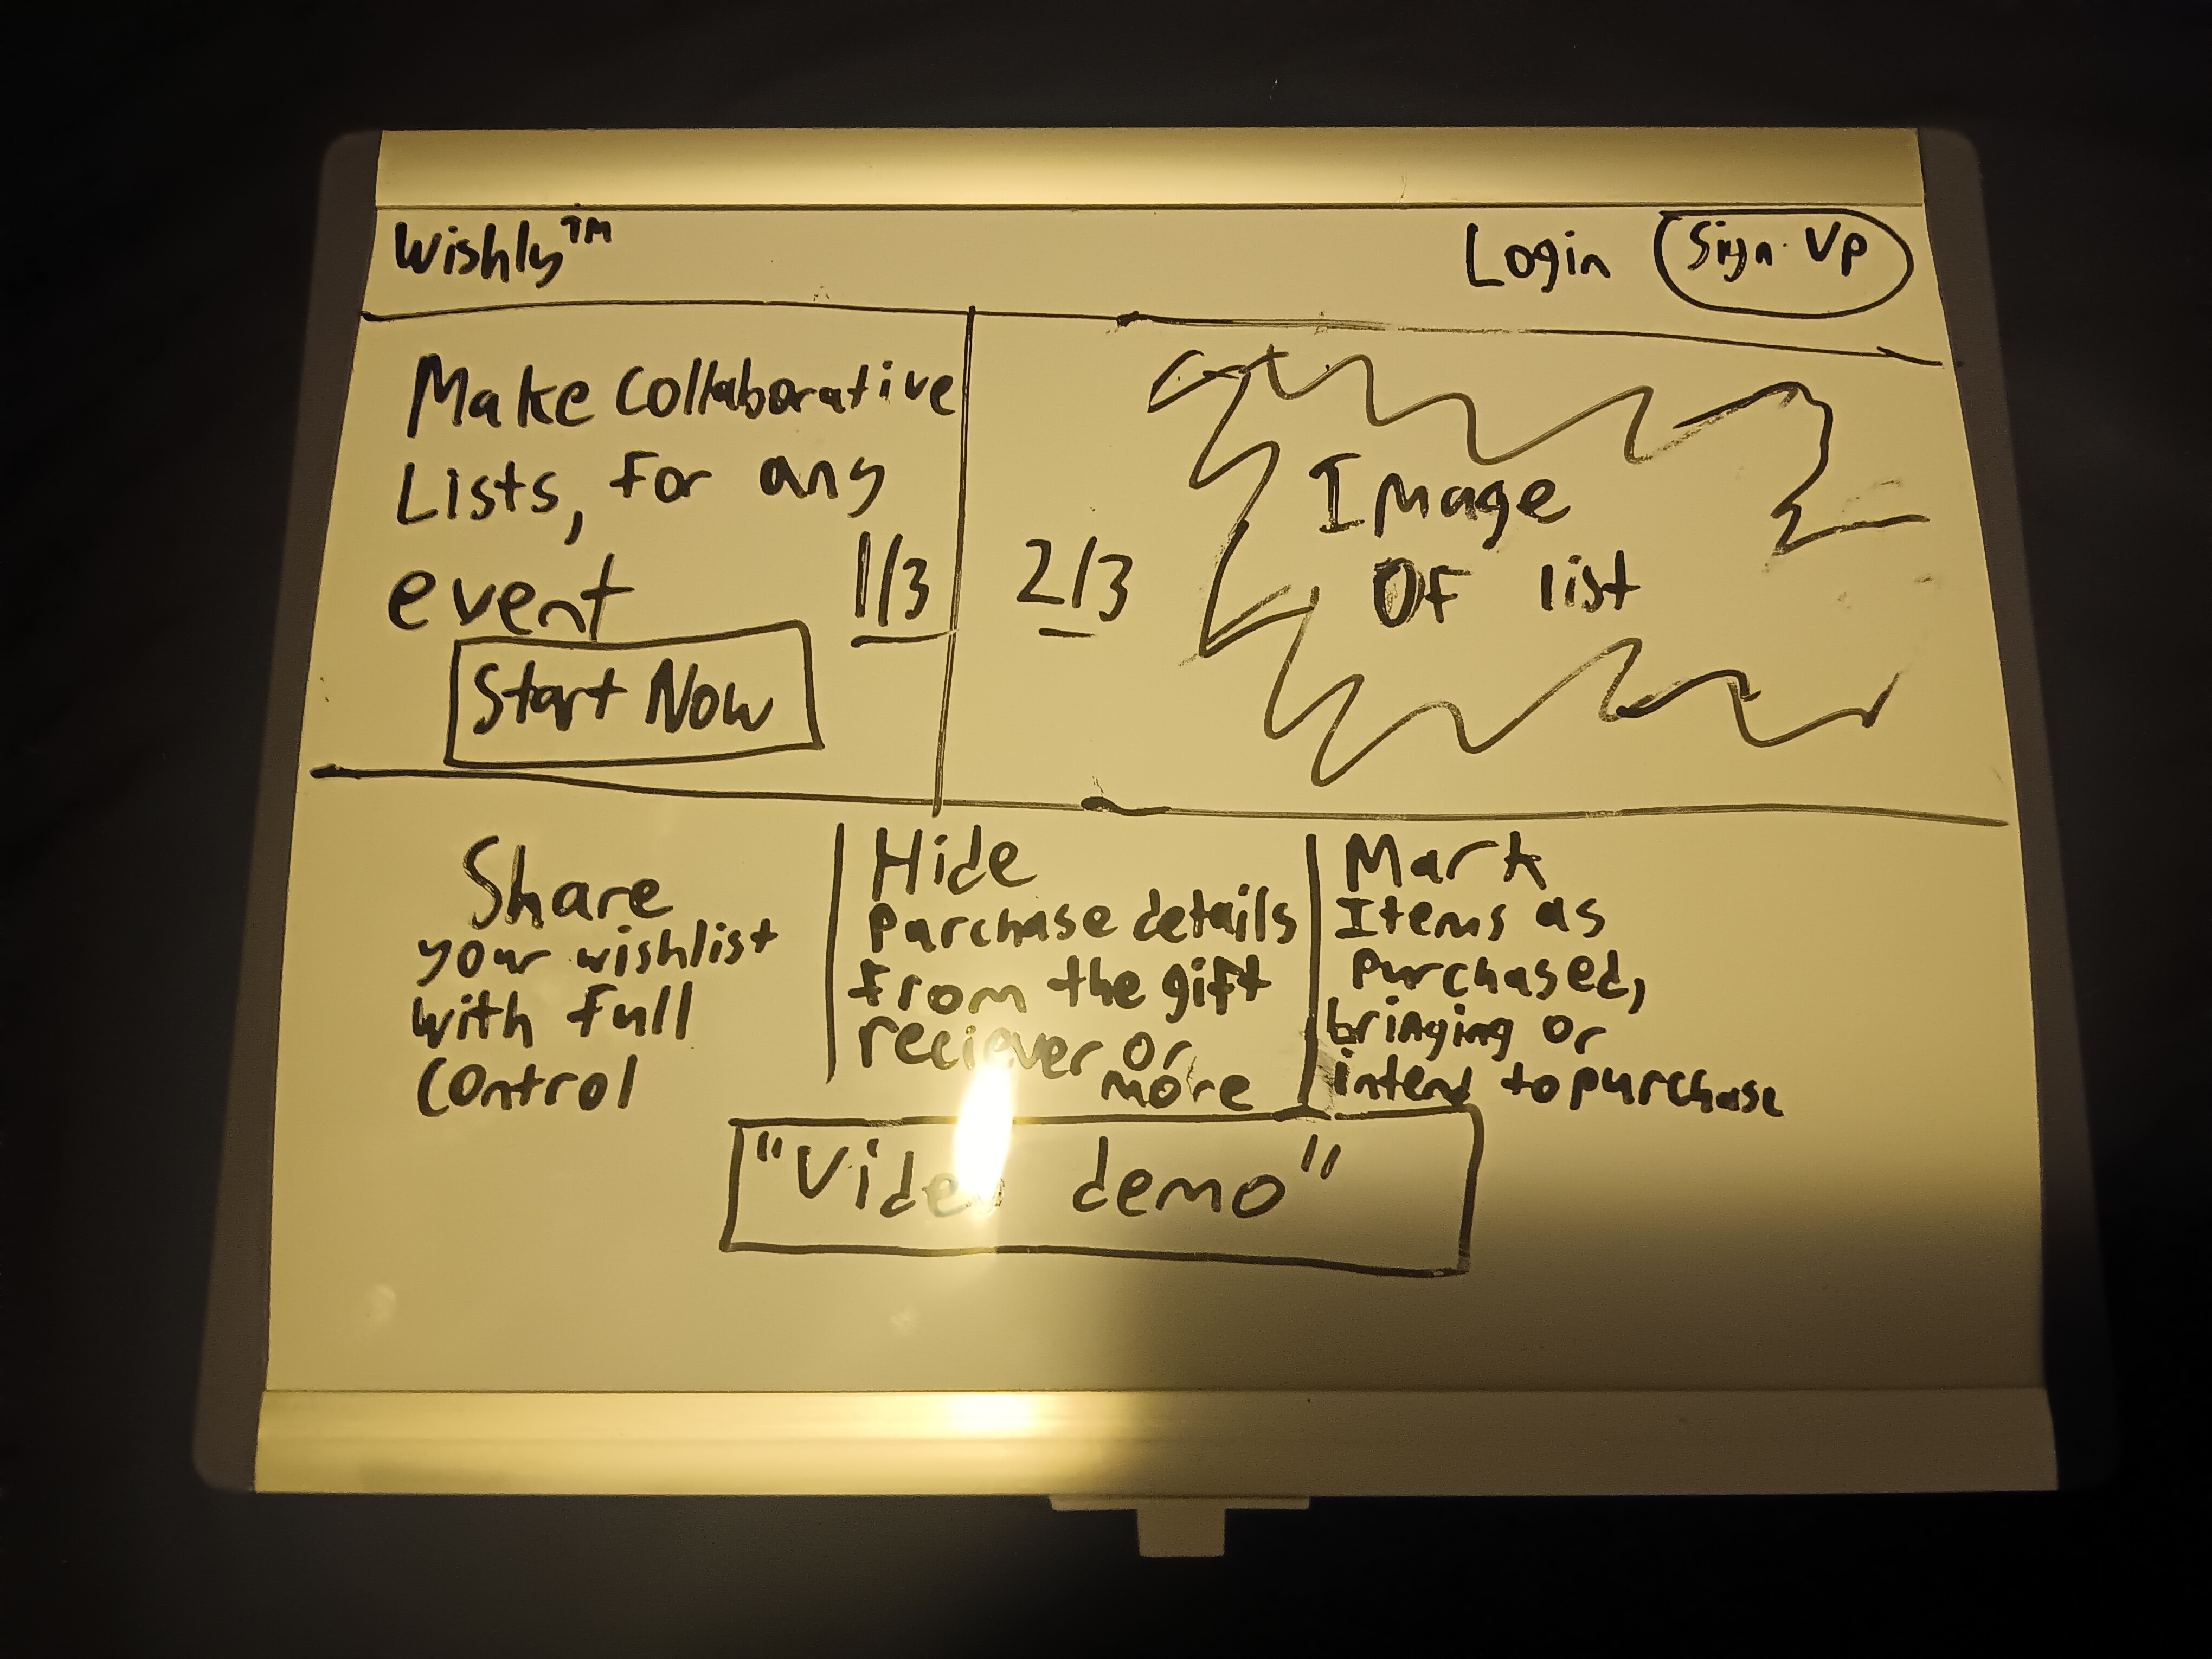 Wishly™
Login Sign Up
Make Collaborative
Lists, for any
event
Start Now
1/3
2/3
Image
Of list
Share
your wishlist
with full
Control
Hide
Purchase details
from the gift
reciever or
more
Mark
Items as
Purchased,
bringing or
intend to purchase
"Video demo"